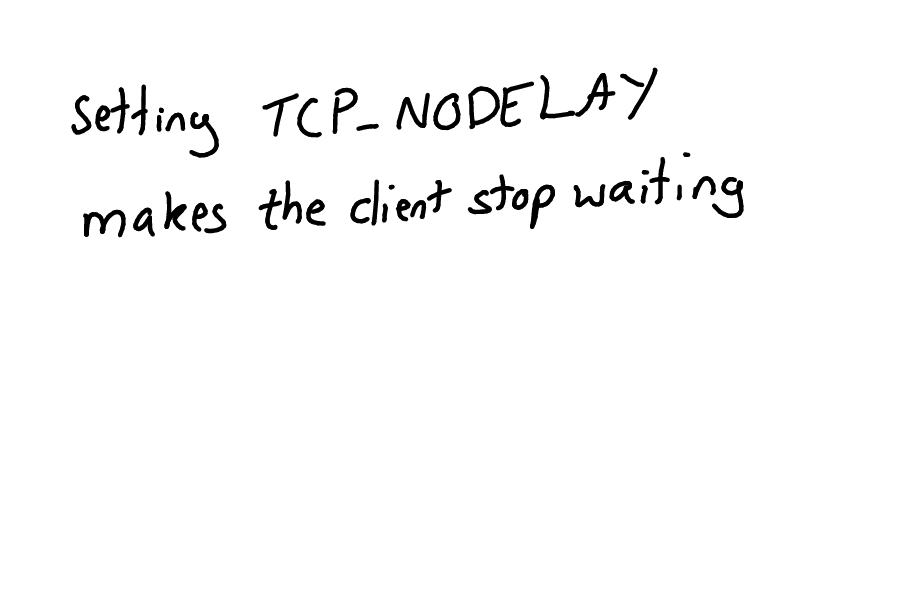 Setting TCP_NODELAY
makes the client stop waiting